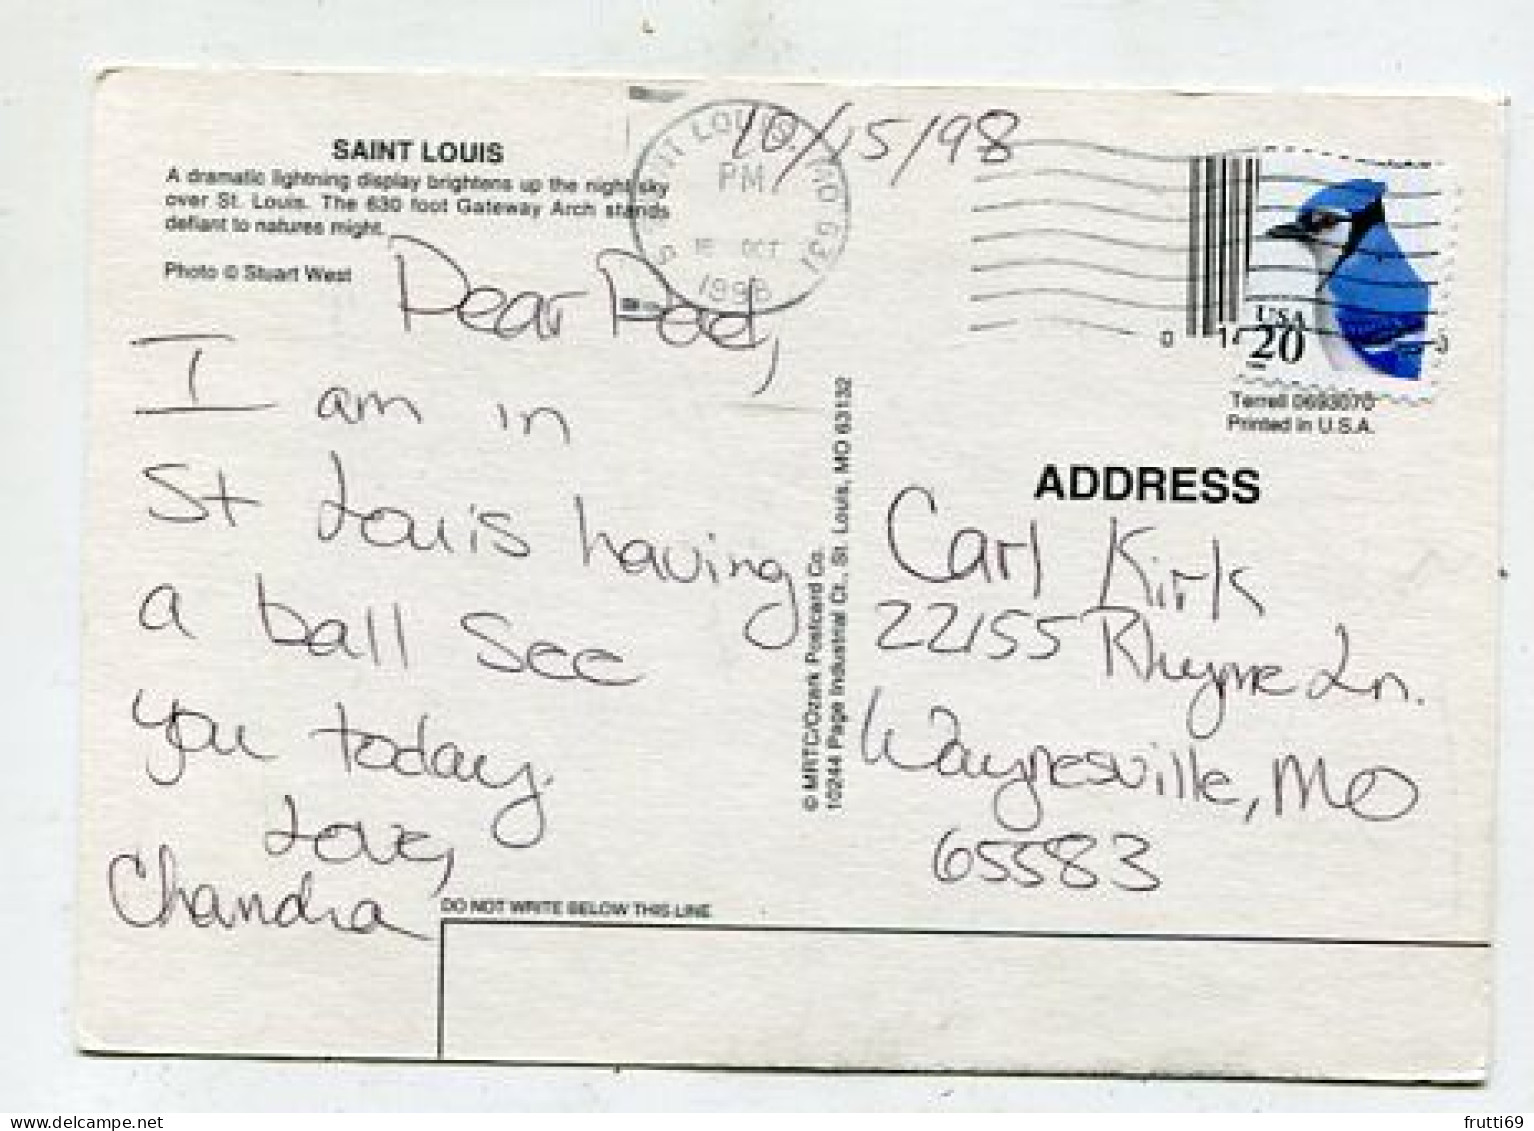 SAINT LOUIS
A dramatic lightning display brightens up the night sky
over St. Louis. The 630 foot Gateway Arch stands
defiant to natures might.
Photo © Stuart West
10/15/98
SAINT LOUIS MO 631
PM
OCT
1998
USA
20
Terrell 0693070
Printed in U.S.A.
Dear Dad,
I am in
St Louis having
a ball see
you today.
Love,
Chandra
© MRTC/Ozark Postcard Co.
10244 Page Industrial Ct., St. Louis, MO 63132
ADDRESS
Carl Kirk
22155 Rhyme Ln.
Waynesville, MO
65583
DO NOT WRITE BELOW THIS LINE
frutti69